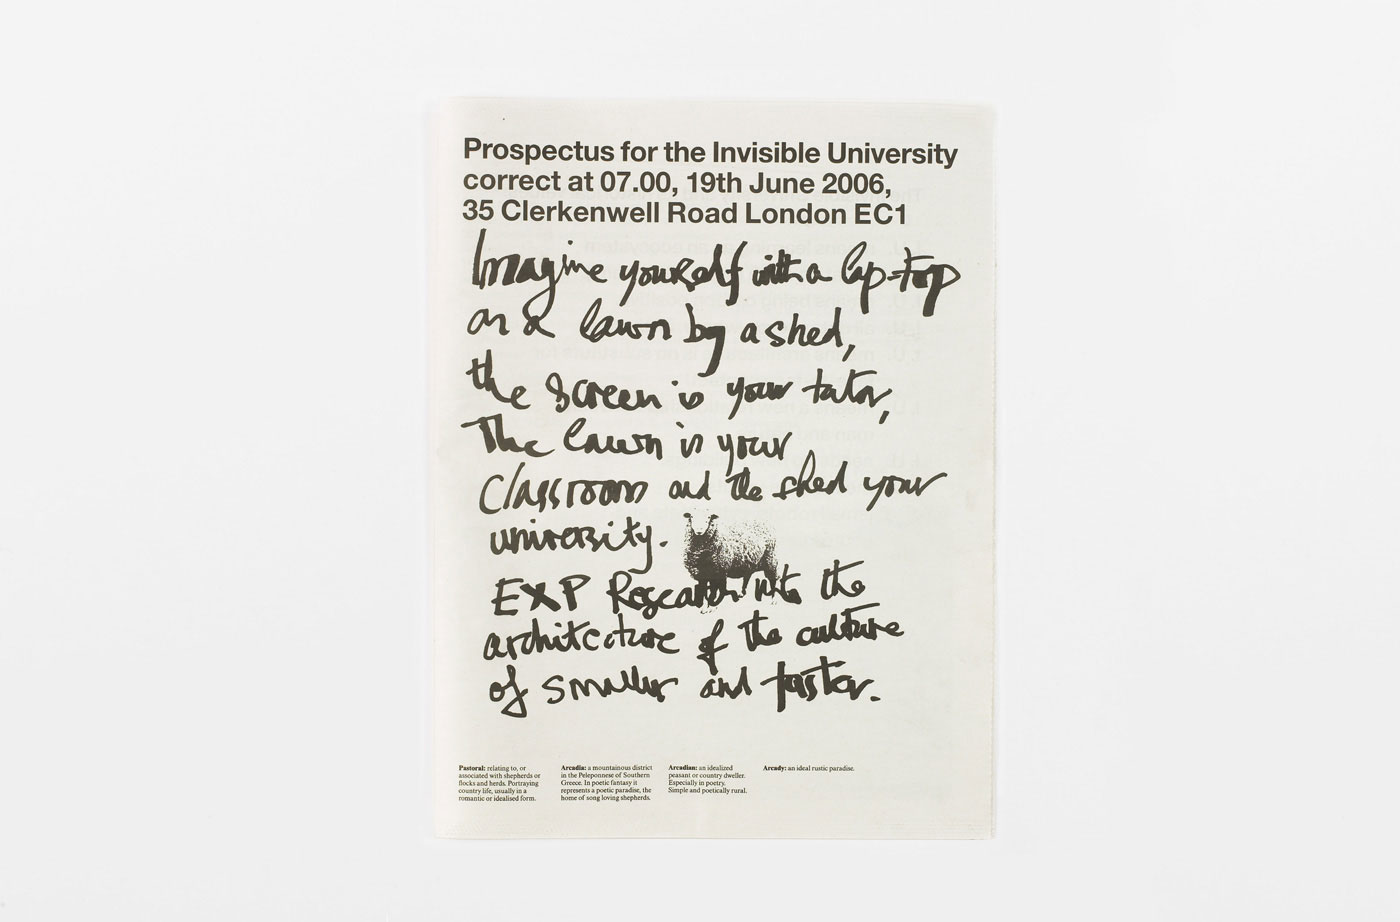 Prospectus for the Invisible University
correct at 07.00, 19th June 2006,
35 Clerkenwell Road London EC1
Imagine yourself with a lap-top
on a lawn by a shed,
the screen is your tutor,
The lawn is your
classroom and the shed your
university.
EXP Research into the
architecture of the culture
of smaller and faster.
Pastoral: relating to, or
associated with shepherds or
flocks and herds. Portraying
country life, usually in a
romantic or idealised form.
Arcadia: a mountainous district
in the Peleponnese of Southern
Greece. In poetic fantasy it
represents a poetic paradise, the
home of song loving shepherds.
Arcadian: an idealized
peasant or country dweller.
Especially in poetry.
Simple and poetically rural.
Arcady: an ideal rustic paradise.